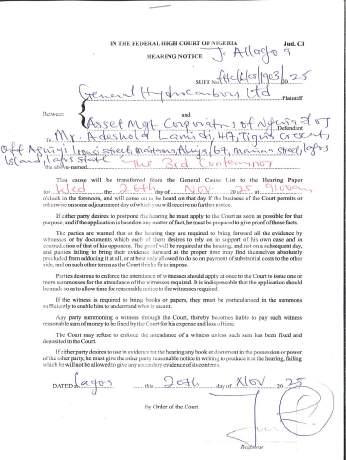 IN THE FEDERAL HIGH COURT OF NIGERIA Jud. C1
HEARING NOTICE J. Allagoa
SUIT No. FHC/L/CS/903/25
General Hydrocarbons Ltd
Plaintiff
Between and
Asset Mgt Corporation of Nigeria & ors
Defendant
To Mr. Adeshola Lamidi, 4A, Crescent,
Off street, Maitama Abuja/ 67, Marina street, Lagos
Island, Lagos State
the above-named The 3rd Contemnor
This cause will be transferred from the General Cause List to the Hearing Paper
for Wed the 26th day of Nov 2025 at 9:00am
o'clock in the forenoon, and will come on to be heard on that day if the business of the Court permits or
otherwise on some adjournment day of which you will receive no further notice.
If either party desires to postpone the hearing he must apply to the Court as soon as possible for that
purpose, and if the application is based on any matter of fact, he must be prepared to give proof of those facts.
The parties are warned that at the hearing they are required to bring forward all the evidence by
witnesses or by documents which each of them desires to rely on in support of his own case and in
contradiction of that of his opponent. The proof will be required at the hearing, and not on a subsequent day,
and parties failing to bring their evidence forward at the proper time may find themselves absolutely
precluded from adducing it at all, or at best only allowed to do so on payment of substantial costs to the other
side, and on such other terms as the Court thinks fit to impose.
Parties desirous to enforce the attendance of witnesses should apply at once to the Court to issue one or
more summonses for the attendance of the witnesses required. It is indispensable that the application should
be made so as to allow time for reasonable notice to the witnesses required.
If the witness is required to bring books or papers, they must be particularised in the summons
sufficiently to enable him to understand what is meant.
Any party summoning a witness through the Court, thereby becomes liable to pay such witness
reasonable sum of money to be fixed by the Court for his expense and loss of time.
The Court may refuse to enforce the attendance of a witness unless such sum has been fixed and
deposited in the Court.
If either party desires to use in evidence at the hearing any book or document in the possession or power
of the other party, he must give the other party reasonable notice in writing to produce it at the hearing, failing
which he will not be allowed to give any secondary evidence of its contents.
DATED at Lagos this 20th day of Nov 2025
By Order of the Court
Registrar